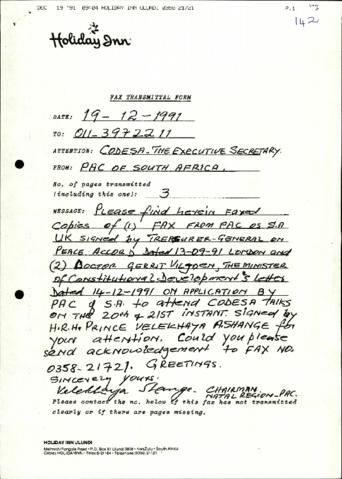 DEC 19 '91 09:04 HOLIDAY INN ULUNDI 0358 21721 P.1
142
Holiday Inn
FAX TRANSMITTAL FORM
DATE: 19-12-1991
TO: 011-3972211
ATTENTION: CODESA-THE EXECUTIVE SECRETARY.
FROM: PAC OF SOUTH AFRICA.
No. of pages transmitted
(including this one): 3
MESSAGE: Please find herein faxed
Copies of (1) FAX FROM PAC OF S.A
UK SIGNED by TREASURER-GENERAL ON
PEACE ACCORD, Dated 13-09-91 LONDON and
(2) DOCTOR GERRIT VILJOEN, THE MINISTER
of Constitutional-Development's Letter
Dated 14-12-1991 ON APPLICATION BY
PAC of S.A. to attend CODESA TALKS
ON THE 20th & 21ST INSTANT SIGNED by
H.R.H. PRINCE VELEKHAYA SHANGE for
your attention. Could you please
send acknowledgement to FAX NO.
0358-21721. GREETINGS.
SINCERELY yours.
Velekhaya Shange. CHAIRMAN
NATAL REGION-PAC.
Please contact the no. below if this fax has not transmitted
clearly or if there are pages missing.
HOLIDAY INN ULUNDI